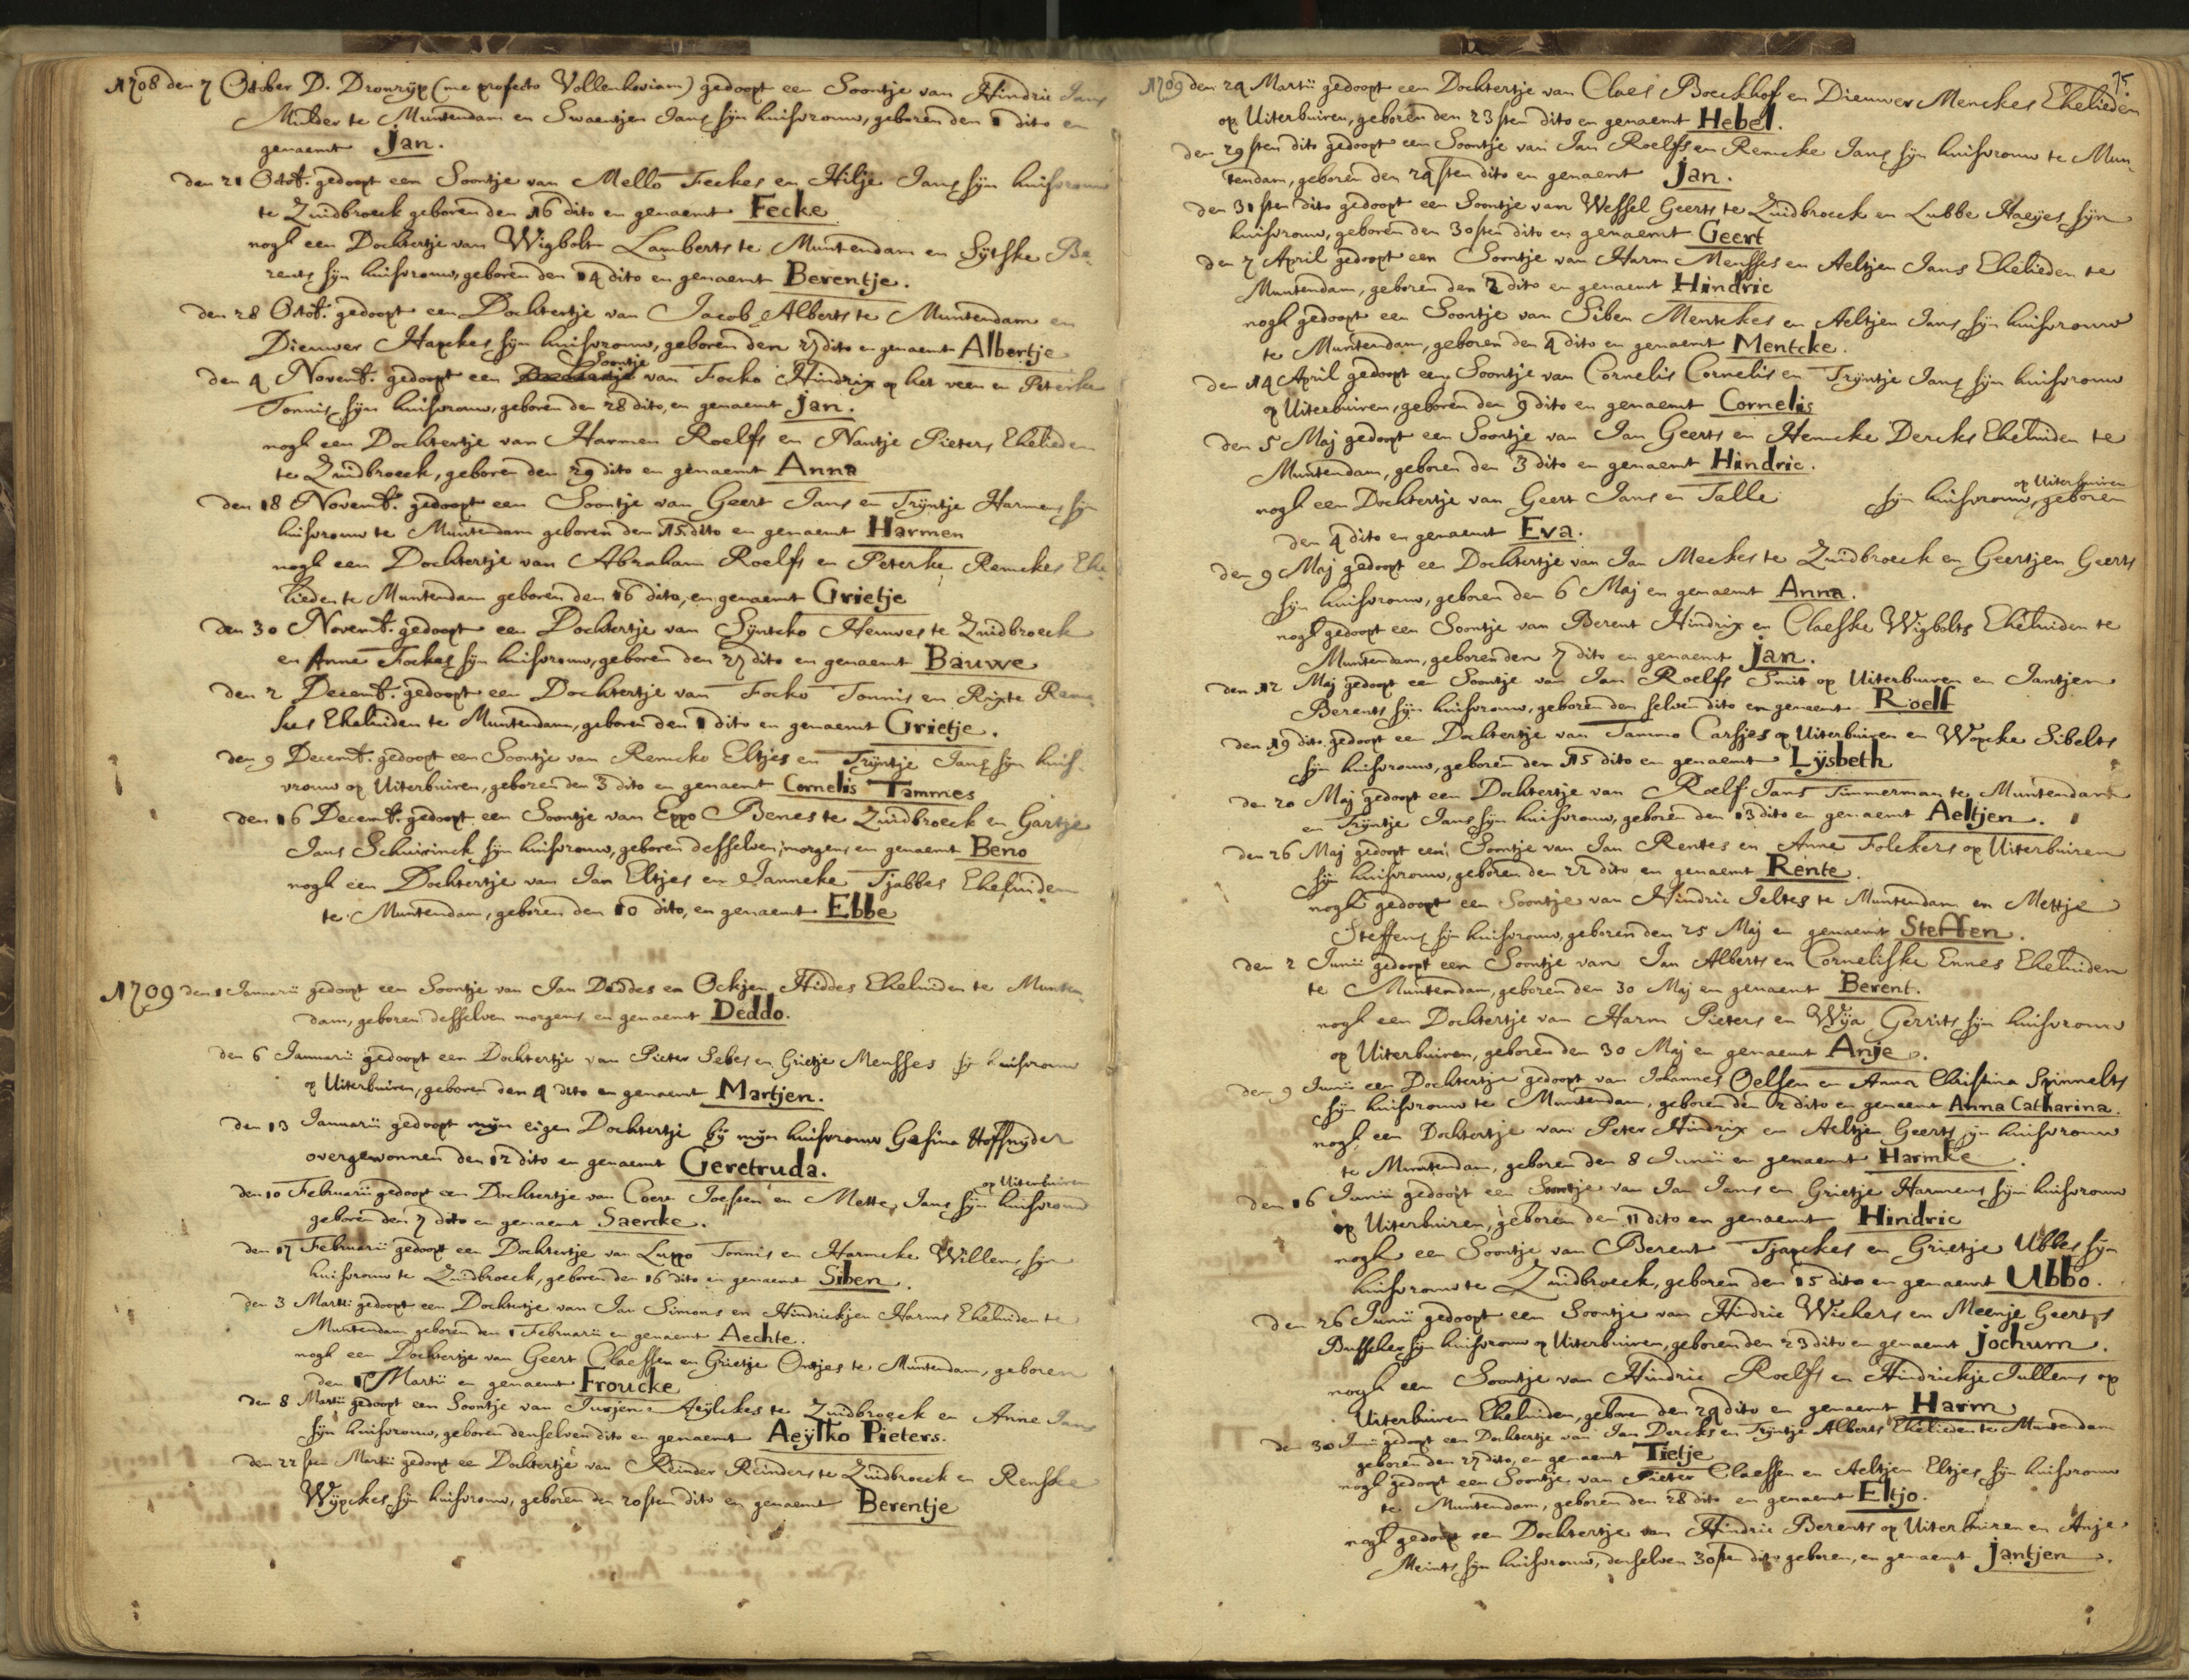 1708 den 7 October D. Dronrijp (me profecto Vollenhoviam) gedoopt een Soontje van Hindric Jans
Mulder te Muntendam en Swaentjen Jans sijn huisvrouw, geboren den 1 dito en
genaemt Jan.
den 21 Octob. gedoopt een Soontje van Mello Feckes en Hilje Jans sijn huisvrouw
te Zuidbroeck geboren den 16 dito en genaemt Fecke
nogh een Dochtertje van Wigbolt Lamberts te Muntendam en Sijtske Be-
rents sijn huisvrouw, geboren den 14 dito en genaemt Berentje.
den 28 Octob. gedoopt een Dochtertje van Jacob Alberts te Muntendam en
Dieuwer Hapkes sijn huisvrouw, geboren den 27 dito en genaemt Albertje
den 4 Novemb. gedoopt een Soontje van Focko Hindrix op het veen en Peterke
Tonnis sijn huisvrouw, geboren den 28 dito, en genaemt Jan.
nogh een Dochtertje van Harmen Roelfs en Nantje Pieters Ehelieden
te Zuidbroeck, geboren den 29 dito en genaemt Anna
den 18 Novemb. gedoopt een Soontje van Geert Jans en Trijntje Harmens sijn
huisvrouw te Muntendam geboren den 15 dito en genaemt Harmen
nogh een Dochtertje van Abraham Roelfs en Peterke Remckes Ehe-
lieden te Muntendam geboren den 16 dito, en genaemt Grietje
den 30 Novemb. gedoopt een Dochtertje van Sijntcko Heuwes te Zuidbroeck
en Anne Fockes sijn huisvrouw, geboren den 27 dito en genaemt Bauwe
den 2 Decemb. gedoopt een Dochtertje van Focko Tonnis en Rixte Rem-
kes Eheluiden te Muntendam, geboren den 1 dito en genaemt Grietje.
den 9 Decemb. gedoopt een Soontje van Remcko Eltjes en Trijntje Jans sijn huis-
vrouw op Uiterbuiren, geboren den 3 dito en genaemt Cornelis Tammes
den 16 Decemb. gedoopt een Soontje van Eppo Benes te Zuidbroeck en Gartje
Jans Schuirinck sijn huisvrouw, geboren desselven morgens en genaemt Beno
nogh een Dochtertje van Jan Eltjes en Janneke Tjabbes Eheluiden
te Muntendam, geboren den 10 dito, en genaemt Ebbe
1709 den 1 Januarii gedoopt een Soontje van Jan Deddes en Ockjen Hiddes Eheluiden te Munten-
dam, geboren desselven morgens en genaemt Deddo.
den 6 Januarii gedoopt een Dochtertje van Pieter Sebes en Grietje Mensses sijn huisvrouw
op Uiterbuiren, geboren den 4 dito en genaemt Martjen.
den 13 Januarii gedoopt mijn eigen Dochtertje bij mijn huisvrouw Gesina Hoffsnyder
overgewonnen den 12 dito en genaemt Geretruda.
op Uiterbuiren
den 10 Februarii gedoopt een Dochtertje van Coert Joesten en Mette Jans sijn huisvrouw
geboren den 7 dito en genaemt Saercke.
den 17 Februarii gedoopt een Dochtertje van Luppo Tonnis en Harmcke Willems sijn
huisvrouw te Zuidbroeck, geboren den 16 dito en genaemt Siben.
den 3 Martii gedoopt een Dochtertje van Jan Simons en Hindrickjen Harms Eheluiden te
Muntendam geboren den 1 Februarii en genaemt Aechte.
nogh een Dochtertje van Geert Claessen en Grietje Ontjes te Muntendam, geboren
den 1 Martii en genaemt Froucke
den 8 Martii gedoopt een Soontje van Jurjen Aeijlckes te Zuidbroeck en Anne Jans
sijn huisvrouw, geboren denselven dito en genaemt Aeijlko Pieters.
den 22sten Martii gedoopt een Dochtertje van Reinder Reinders te Zuidbroeck en Renske
Wijpckes sijn huisvrouw, geboren den 20sten dito en genaemt Berentje
75
1709 den 24 Martii gedoopt een Dochtertje van Claes Boeckhof en Dieuwer Menckes Ehelieden
op Uiterbuiren, geboren den 23sten dito en genaemt Hebel.
den 29sten dito gedoopt een Soontje van Jan Roelfs en Remcke Jans sijn huisvrouw te Mun-
tendam, geboren den 24sten dito en genaemt Jan.
den 31sten dito gedoopt een Soontje van Wessel Geerts te Zuidbroeck en Lubbe Haeijes sijn
huisvrouw, geboren den 30sten dito en genaemt Geert
den 7 April gedoopt een Soontje van Harm Mensses en Aeltjen Jans Ehelieden te
Muntendam, geboren den 2 dito en genaemt Hindric
nogh gedoopt een Soontje van Siben Mentckes en Aeltjen Jans sijn huisvrouw
te Muntendam, geboren den 4 dito en genaemt Mentcke.
den 14 April gedoopt een Soontje van Cornelis Cornelis en Trijntje Jans sijn huisvrouw
op Uiterbuiren, geboren den 9 dito en genaemt Cornelis
den 5 Maj gedoopt een Soontje van Jan Geerts en Hemcke Dercks Eheluiden te
Muntendam, geboren den 3 dito en genaemt Hindric.
op Uiterbuiren
nogh een Dochtertje van Geert Jans en Talle sijn huisvrouw, geboren
den 4 dito en genaemt Eva.
den 9 Maj gedoopt een Dochtertje van Jan Meckes te Zuidbroeck en Geertjen Geerts
sijn huisvrouw, geboren den 6 Maj en genaemt Anna.
nogh gedoopt een Soontje van Berent Hindrix en Claeske Wigbolts Eheluiden te
Muntendam, geboren den 7 dito en genaemt Jan.
den 12 Maj gedoopt een Soontje van Jan Roelfs Smit op Uiterbuiren en Jantjen
Berents sijn huisvrouw, geboren den selven dito en genaemt Roelf
den 19 dito gedoopt een Dochtertje van Tammo Carsjes op Uiterbuiren en Wopcke Sibelts
sijn huisvrouw, geboren den 15 dito en genaemt Lijsbeth
den 20 Maj gedoopt een Dochtertje van Roelf Jans Timmerman te Muntendam
en Trijntje Jans sijn huisvrouw, geboren den 13 dito en genaemt Aeltjen.
den 26 Maj gedoopt een Soontje van Jan Rentes en Anne Folckers op Uiterbuiren
sijn huisvrouw, geboren den 22 dito en genaemt Rente.
nogh gedoopt een Soontje van Hindric Jeltes te Muntendam en Mettje
Steffens sijn huisvrouw, geboren den 25 Maj en genaemt Steffen.
den 2 Junii gedoopt een Soontje van Jan Alberts en Corneliske Ennes Eheluiden
te Muntendam, geboren den 30 Maj en genaemt Berent.
nogh een Dochtertje van Harm Pieters en Wija Gerrits sijn huisvrouw
op Uiterbuiren, geboren den 30 Maj en genaemt Anje.
den 9 Junii een Dochtertje gedoopt van Johannes Oelsen en Anna Christina Spinnelts
sijn huisvrouw te Muntendam, geboren den 2 dito en genaemt Anna Catharina.
nogh een Dochtertje van Peter Hindrix en Aeltjen Geerts sijn huisvrouw
te Muntendam, geboren den 8 Junii en genaemt Harmke.
den 16 Junii gedoopt een Soontje van Jan Jans en Grietje Harmens sijn huisvrouw
op Uiterbuiren, geboren den 11 dito en genaemt Hindric
nogh een Soontje van Berent Tjapckes en Grietje Ubbes sijn
huisvrouw te Zuidbroeck, geboren den 15 dito en genaemt Ubbo.
den 26 Junii gedoopt een Soontje van Hindric Wickers en Meenje Geerts
Busscher sijn huisvrouw op Uiterbuiren, geboren den 23 dito en genaemt Jochum.
nogh een Soontje van Hindric Roelfs en Hindrickje Jullens op
Uiterbuiren Eheluiden, geboren den 24 dito en genaemt Harm
den 30 Junii gedoopt een Dochtertje van Jan Dercks en Trijntje Alberts Ehelieden te Muntendam
geboren den 27 dito, en genaemt Tietje
nogh gedoopt een Soontje van Pieter Claessen en Aeltjen Eltjes sijn huisvrouw
te Muntendam, geboren den 28 dito en genaemt Eltjo.
nogh gedoopt een Dochtertje van Hindric Berents op Uiterbuiren en Anje
Meints sijn huisvrouw, denselven 30sten dito geboren, en genaemt Jantjen.